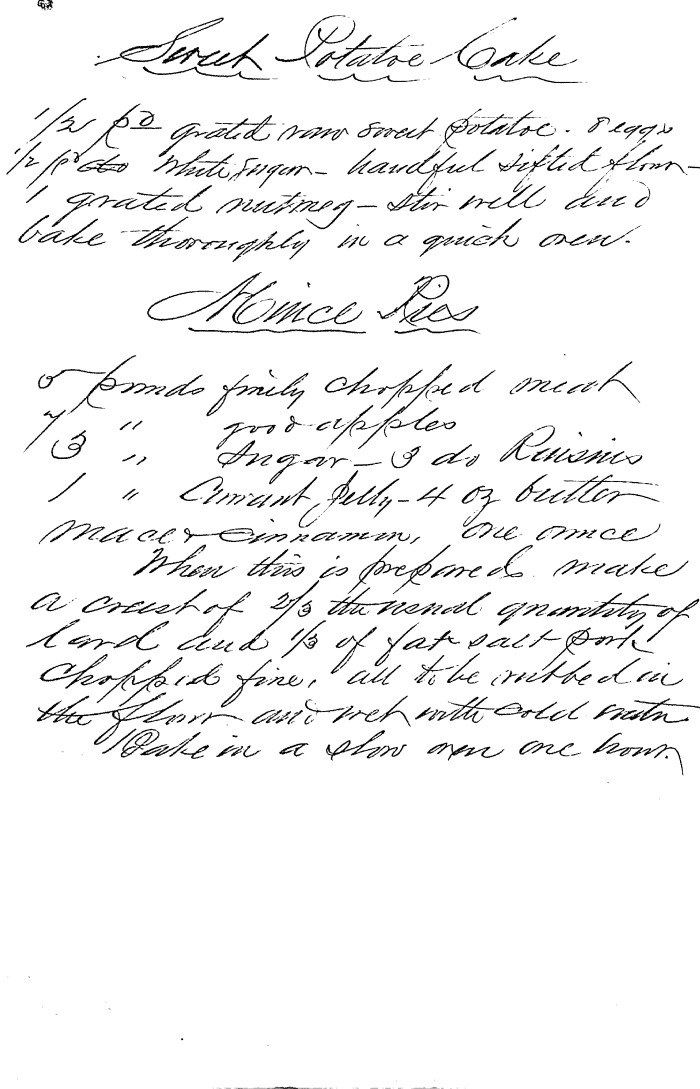 Sweet Potatoe Cake
1/2 pd grated raw sweet potatoe. 8 eggs
1/2 pd do White Sugar - handful sifted flour -
1 grated nutmeg - stir well and
bake thoroughly in a quick oven.
Mince Pies
5 pounds finely chopped meat
7 " good apples
3 " Sugar - 3 do Raisins
1 " Currant Jelly - 4 oz butter
mace & Cinnamon, one ounce
When this is prepared make
a crust of 2/3 the usual quantity of
lard and 1/3 of fat salt pork
chopped fine, all to be rubbed in
the flour and wet with cold water
Bake in a slow oven one hour.